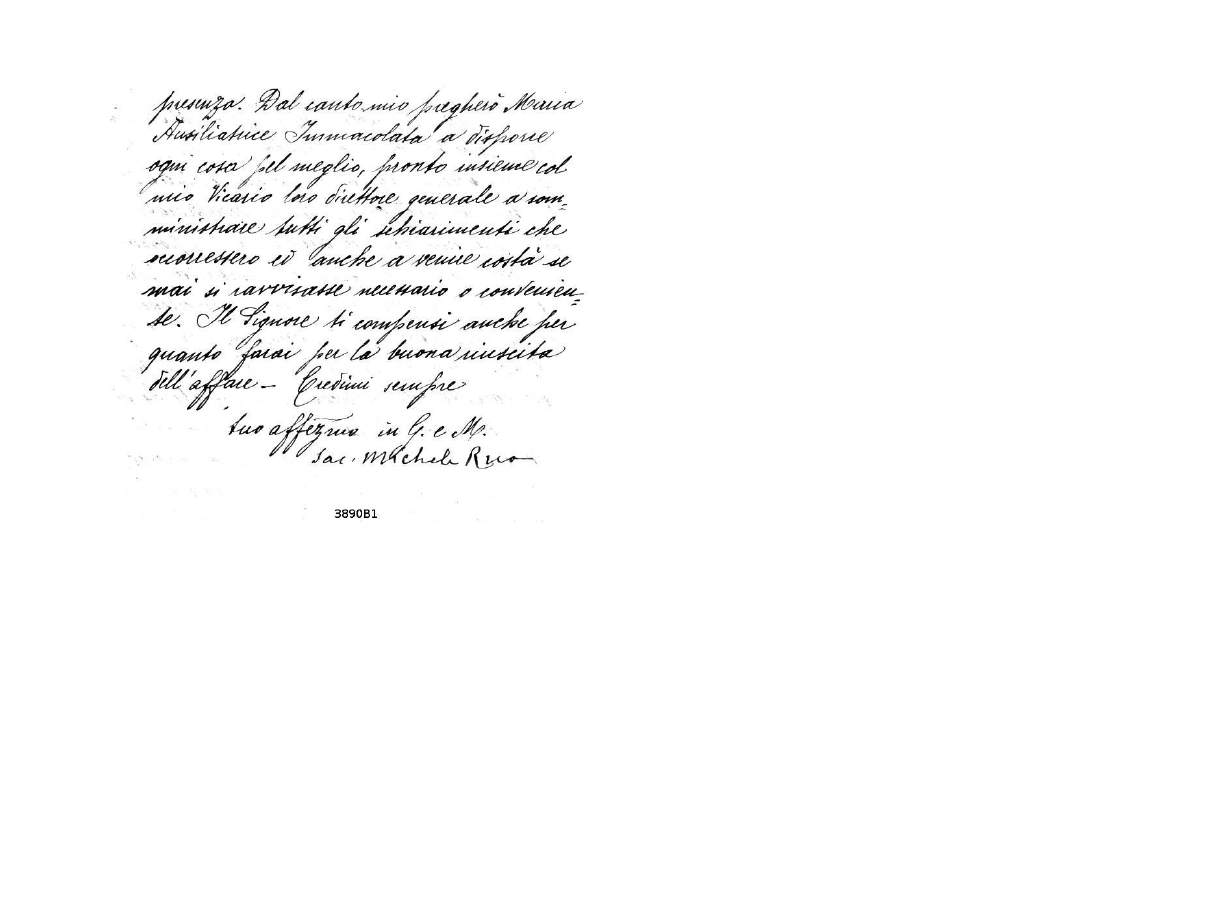 presenza. Dal canto mio pregherò Maria
Ausiliatrice Immacolata a disporre
ogni cosa pel meglio, pronto insieme col
mio Vicario loro direttore generale a som-
ministrare tutti gli schiarimenti che
occorressero ed anche a venire costà se
mai si ravvisasse necessario o convenien=
te. Il Signore ti compensi anche per
quanto farai per la buona riuscita
dell'affare – Credimi sempre
tuo affezmo in G. e M.
Sac. Michele Rua
3890B1